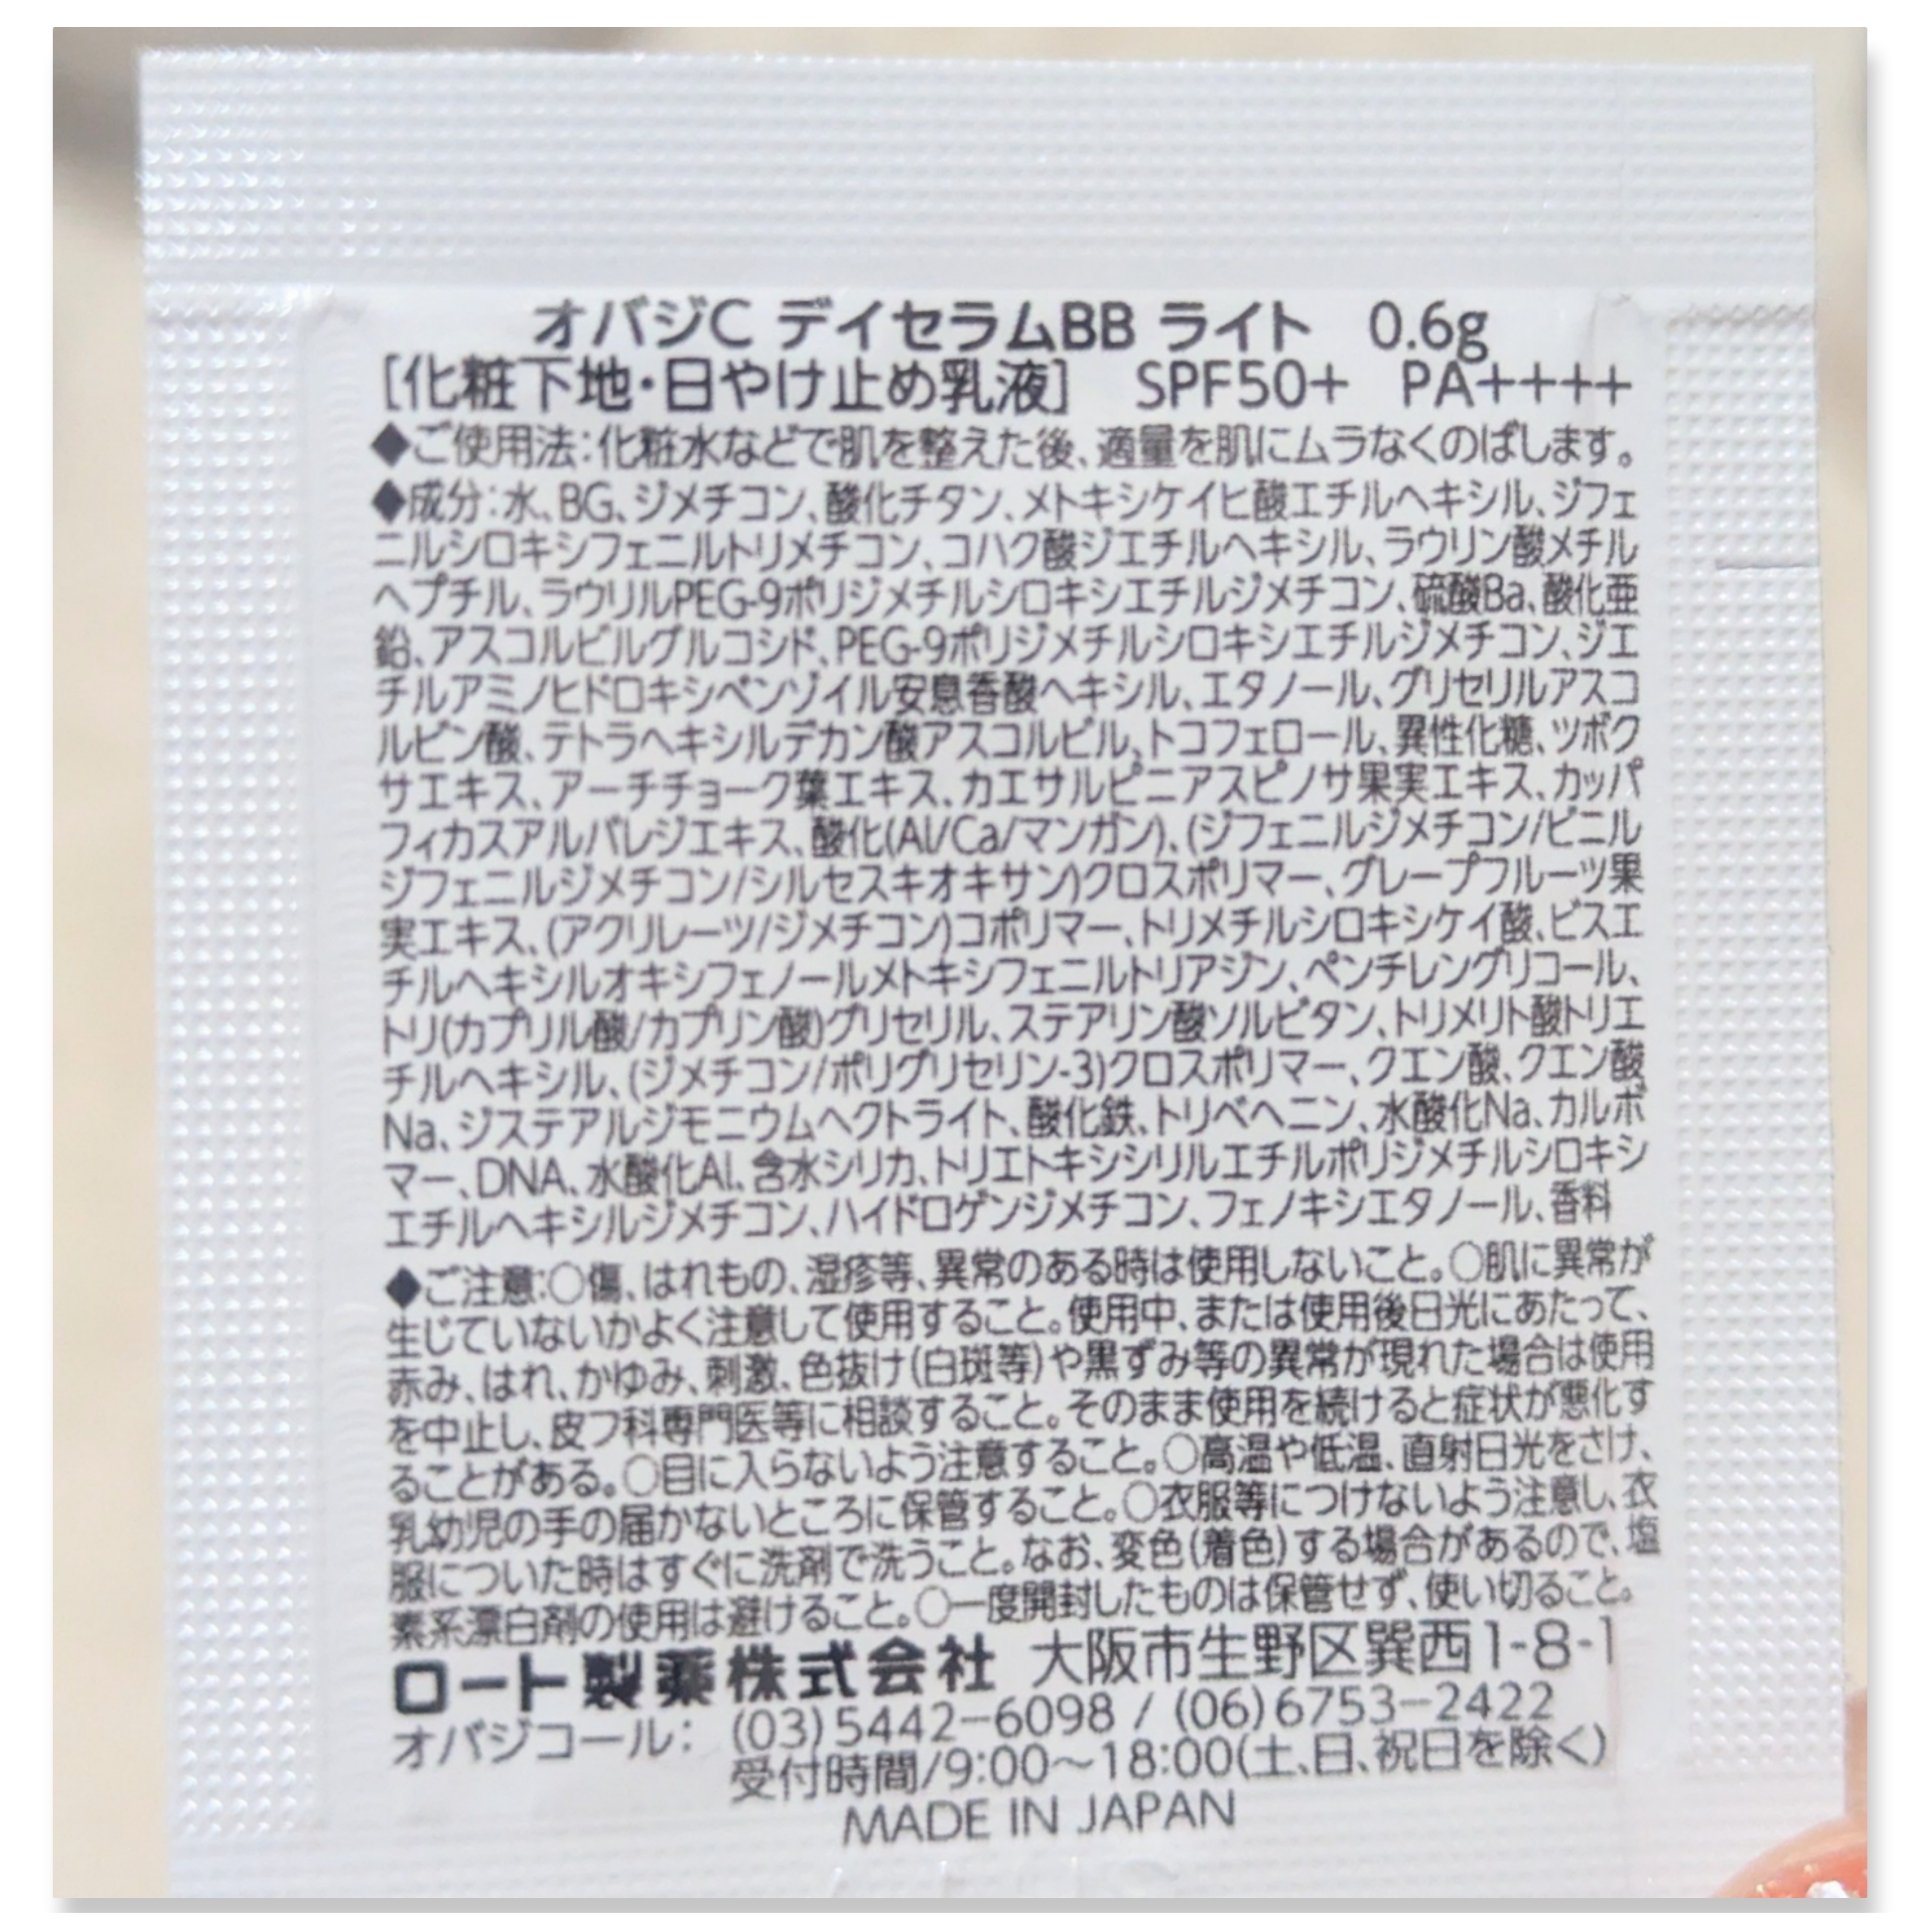 オバジC デイセラムBB ライト　0.6g
[化粧下地・日やけ止め乳液]　SPF50+　PA++++
◆ご使用法:化粧水などで肌を整えた後、適量を肌にムラなくのばします。
◆成分:水、BG、ジメチコン、酸化チタン、メトキシケイヒ酸エチルヘキシル、ジフェ
ニルシロキシフェニルトリメチコン、コハク酸ジエチルヘキシル、ラウリン酸メチル
ヘプチル、ラウリルPEG-9ポリジメチルシロキシエチルジメチコン、硫酸Ba、酸化亜
鉛、アスコルビルグルコシド、PEG-9ポリジメチルシロキシエチルジメチコン、ジエ
チルアミノヒドロキシベンゾイル安息香酸ヘキシル、エタノール、グリセリルアスコ
ルビン酸、テトラヘキシルデカン酸アスコルビル、トコフェロール、異性化糖、ツボク
サエキス、アーチチョーク葉エキス、カエサルピニアスピノサ果実エキス、カッパ
フィカスアルバレジエキス、酸化(Al/Ca/マンガン)、(ジフェニルジメチコン/ビニル
ジフェニルジメチコン/シルセスキオキサン)クロスポリマー、グレープフルーツ果
実エキス、(アクリレーツ/ジメチコン)コポリマー、トリメチルシロキシケイ酸、ビスエ
チルヘキシルオキシフェノールメトキシフェニルトリアジン、ペンチレングリコール、
トリ(カプリル酸/カプリン酸)グリセリル、ステアリン酸ソルビタン、トリメリト酸トリエ
チルヘキシル、(ジメチコン/ポリグリセリン-3)クロスポリマー、クエン酸、クエン酸
Na、ジステアルジモニウムヘクトライト、酸化鉄、トリベヘニン、水酸化Na、カルボ
マー、DNA、水酸化Al、含水シリカ、トリエトキシシリルエチルポリジメチルシロキシ
エチルヘキシルジメチコン、ハイドロゲンジメチコン、フェノキシエタノール、香料
◆ご注意:○傷、はれもの、湿疹等、異常のある時は使用しないこと。○肌に異常が
生じていないかよく注意して使用すること。使用中、または使用後日光にあたって、
赤み、はれ、かゆみ、刺激、色抜け(白斑等)や黒ずみ等の異常が現れた場合は使用
を中止し、皮フ科専門医等に相談すること。そのまま使用を続けると症状が悪化す
ることがある。○目に入らないよう注意すること。○高温や低温、直射日光をさけ、
乳幼児の手の届かないところに保管すること。○衣服等につけないよう注意し、衣
服についた時はすぐに洗剤で洗うこと。なお、変色(着色)する場合があるので、塩
素系漂白剤の使用は避けること。○一度開封したものは保管せず、使い切ること。
ロート製薬株式会社 大阪市生野区巽西1-8-1
オバジコール: (03)5442-6098 / (06)6753-2422
受付時間/9:00〜18:00(土、日、祝日を除く)
MADE IN JAPAN